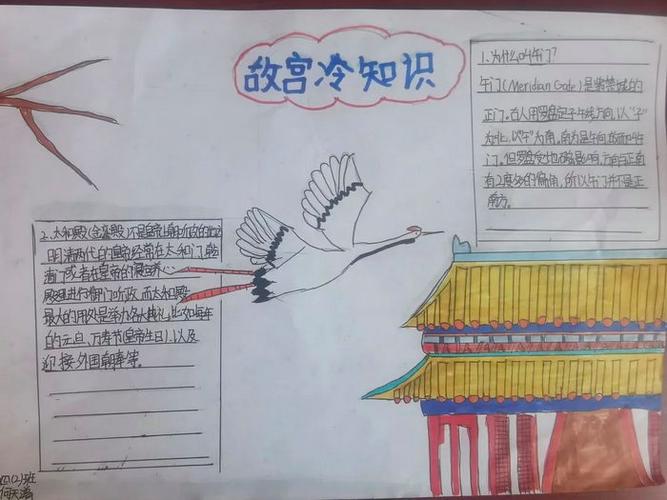 故宫冷知识
1.为什么叫午门?
午门(Meridian Gate)是紫禁城的
正门。古人用罗盘定子午线方向,以"子"
为北,以"午"为南,南为正午向,故而叫午
门。但罗盘受地磁影响,方向与正南
有2度多的偏角,所以午门并不是正
南方。
2.太和殿(金銮殿)不是皇帝上朝听政的地方
明清两代的皇帝经常在太和门,乾
清门或者在皇帝的寝宫养心
殿进行御门听政,而太和殿
最大的用处是举办各大典礼,比如每年
的元旦、万寿节(皇帝生日),以及
迎接外国朝奉等。
四(2)班